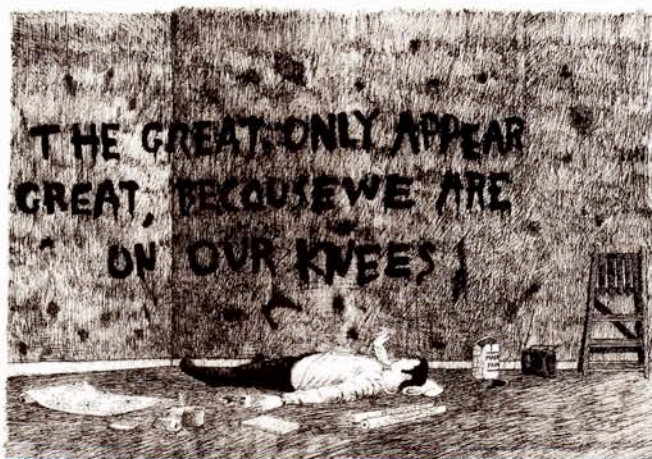 THE GREAT ONLY APPEAR
GREAT, BECOUSE WE ARE
ON OUR KNEES!